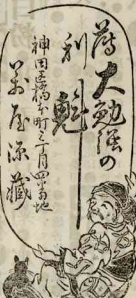 薄大勉強の
利魁
神田区橋本町丁目四番地
萬屋源藏